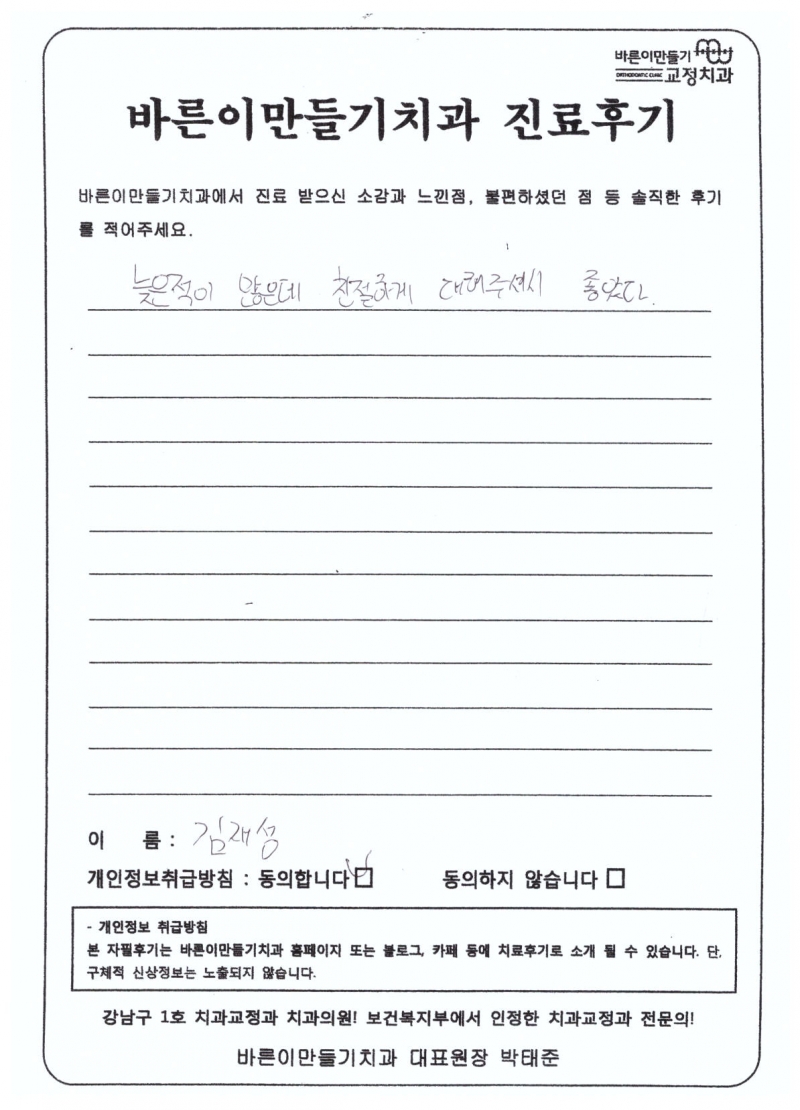 바른이만들기
ORTHODONTIC CLINIC 교정치과
바른이만들기치과 진료후기
바른이만들기치과에서 진료 받으신 소감과 느낀점, 불편하셨던 점 등 솔직한 후기
를 적어주세요.
늦은적이 많은데 친절하게 대해주셔서 좋았다.
이 름 : 김재성
개인정보취급방침 : 동의합니다 ☑ 동의하지 않습니다 □
- 개인정보 취급방침
본 자필후기는 바른이만들기치과 홈페이지 또는 블로그, 카페 등에 치료후기로 소개 될 수 있습니다. 단,
구체적 신상정보는 노출되지 않습니다.
강남구 1호 치과교정과 치과의원! 보건복지부에서 인정한 치과교정과 전문의!
바른이만들기치과 대표원장 박태준